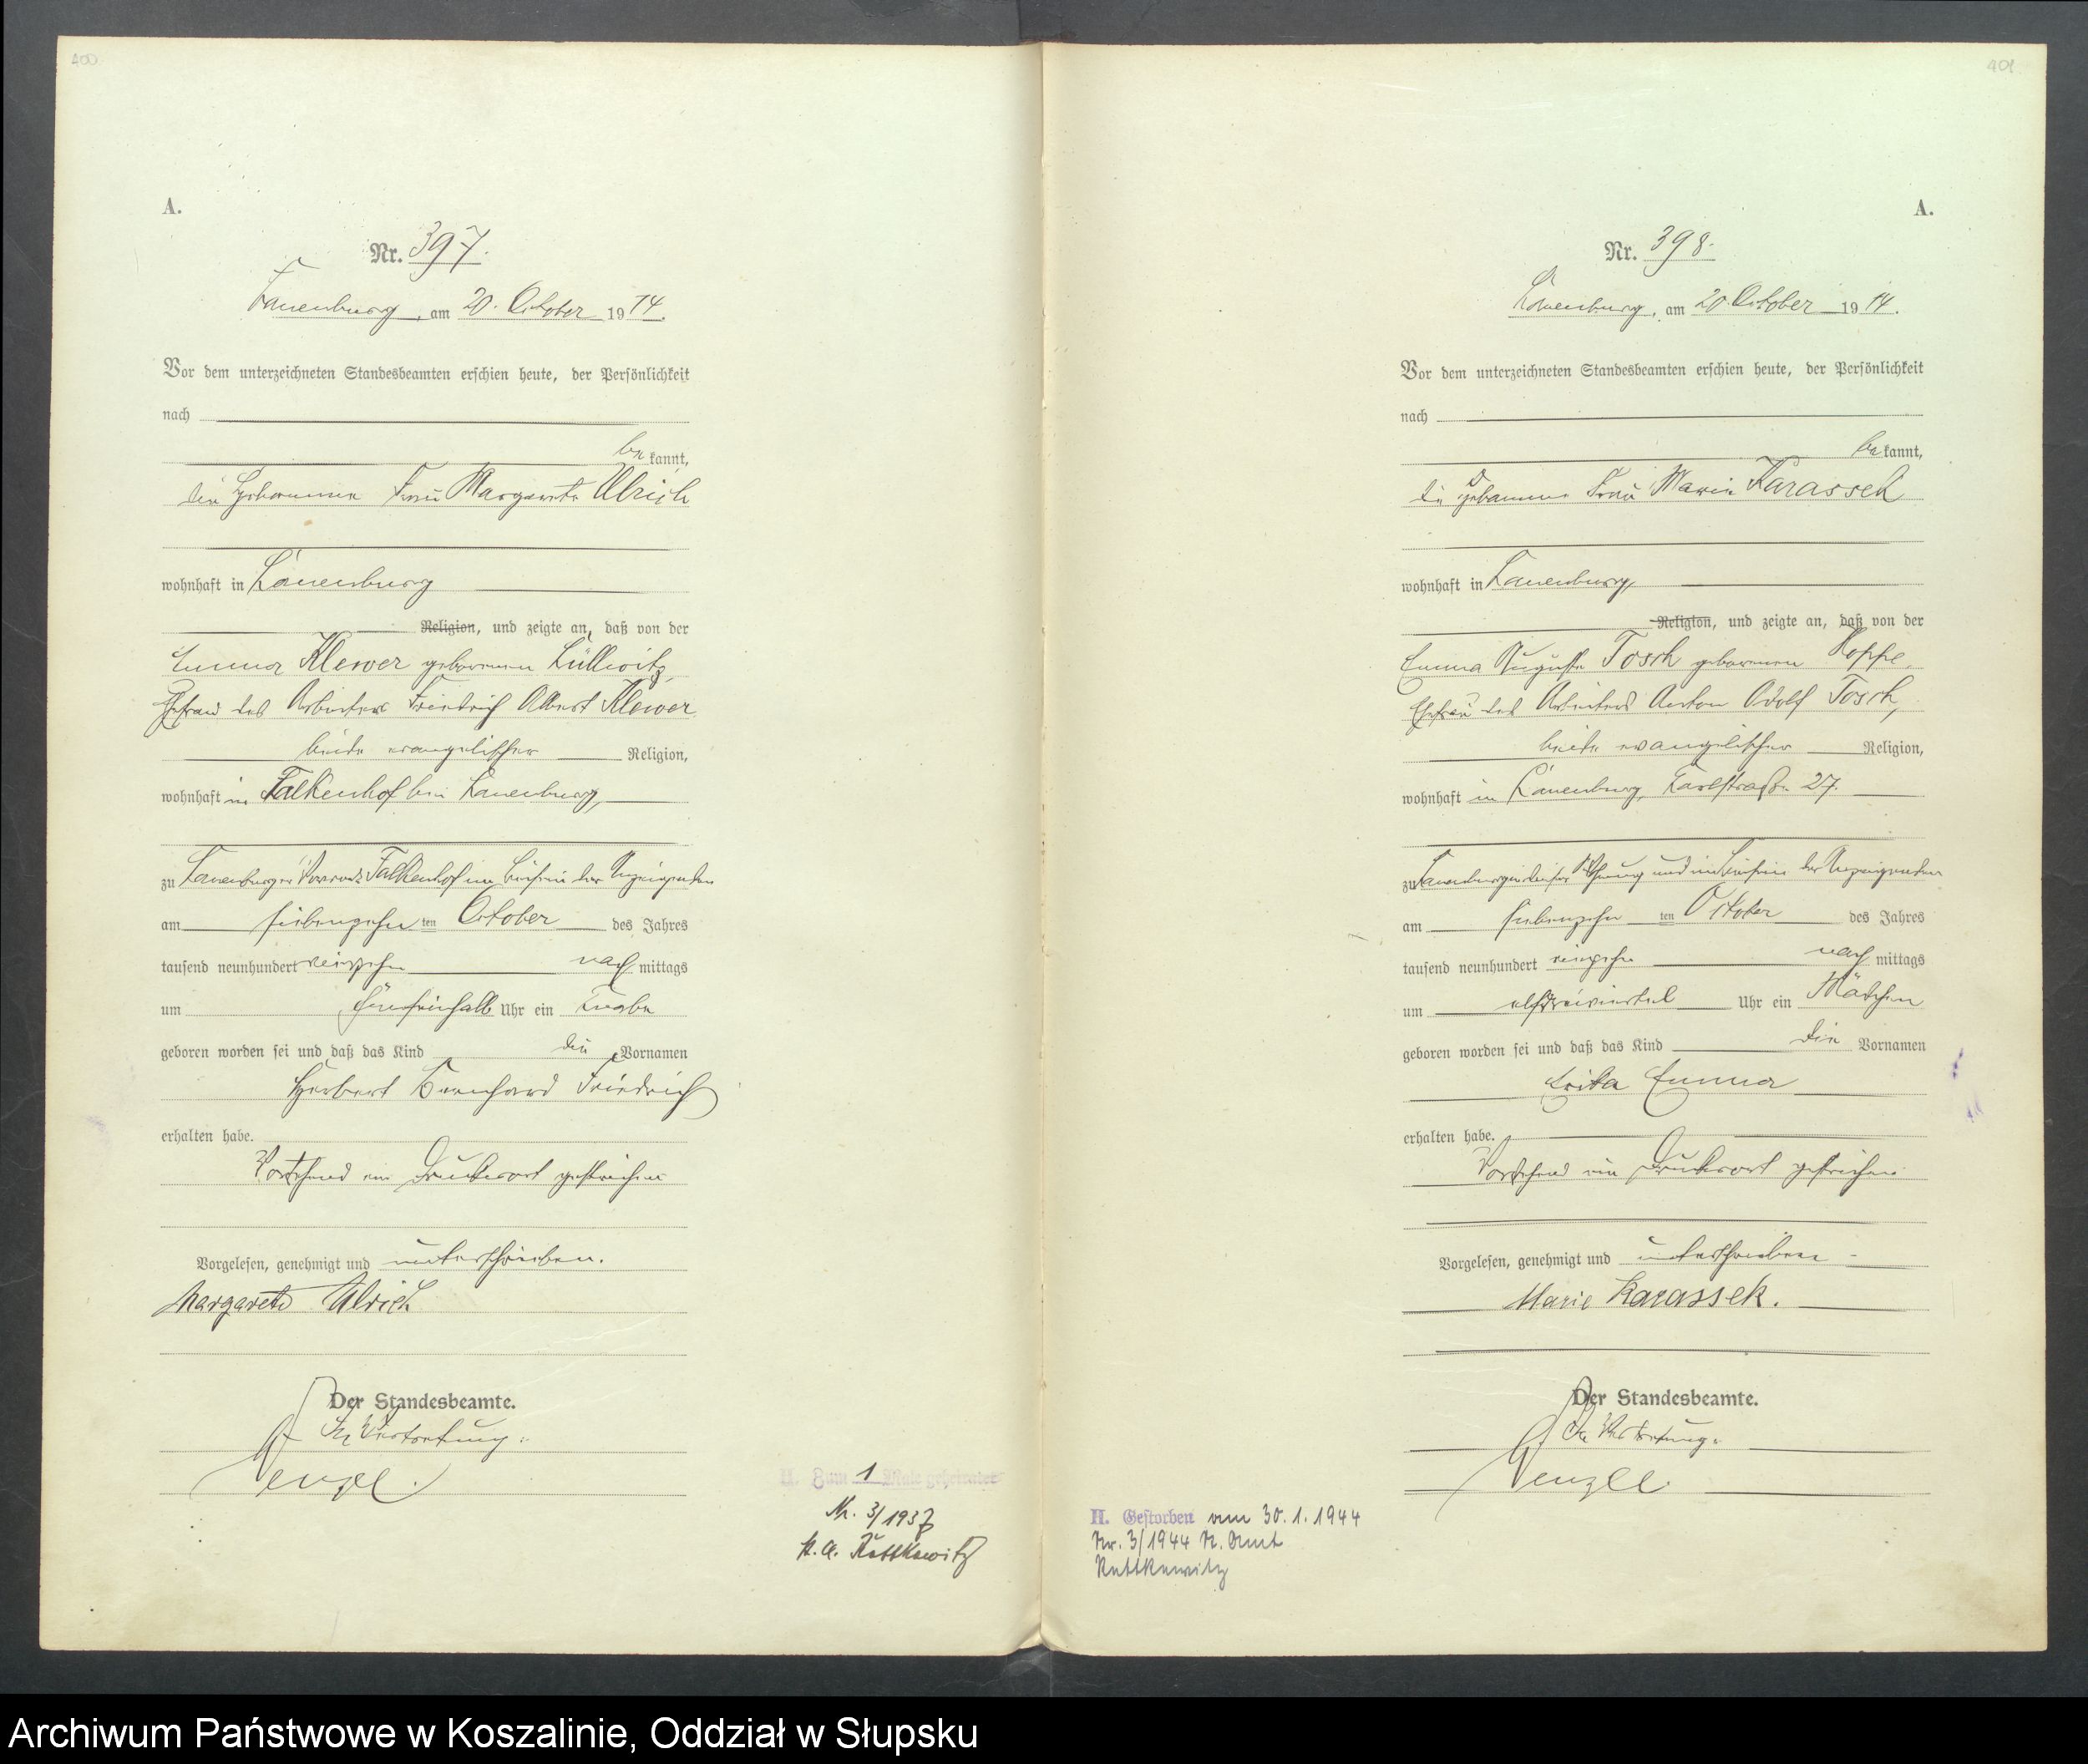 400
A.
Nr. 397.
Lauenburg, am 20. October 1914.
Vor dem unterzeichneten Standesbeamten erschien heute, der Persönlichkeit
nach
be kannt,
die Hebamme Frau Margarete Ulrich
wohnhaft in Lauenburg
Religion, und zeigte an, daß von der
Emma Klewer geborenen Lüllwitz,
Ehefrau des Arbeiters Friedrich Albert Klewer
beide evangelischer Religion,
wohnhaft in Falkenhof bei Lauenburg,
zu Lauenburger Falkenhof im Beisein der Anzeigenden
am siebenzehn ten October des Jahres
tausend neunhundert vierzehn nach mittags
um fünfeinhalb Uhr ein Knabe
geboren worden sei und daß das Kind die Vornamen
Herbert Bernhard Friedrich
erhalten habe.
Vorstehend ein Druckwort gestrichen
Vorgelesen, genehmigt und unterschrieben.
Margarete Ulrich
Der Standesbeamte.
In Vertretung:
Wenzel.
H. Zum 1 Male geheiratet
Nr. 3/1937
St. A. Rettkewitz
401
A.
Nr. 398.
Lauenburg, am 20. October 1914.
Vor dem unterzeichneten Standesbeamten erschien heute, der Persönlichkeit
nach
be kannt,
die Hebamme Frau Marie Karassek
wohnhaft in Lauenburg,
Religion, und zeigte an, daß von der
Emma Auguste Tosch geborenen Hoppe,
Ehefrau des Arbeiters Anton Adolf Tosch,
beide evangelischer Religion,
wohnhaft in Lauenburg, Karlstraße 27.
zu Lauenburg in dieser Wohnung und im Beisein der Anzeigenden
am siebenzehn ten October des Jahres
tausend neunhundert vierzehn nach mittags
um elfdreiviertel Uhr ein Mädchen
geboren worden sei und daß das Kind die Vornamen
Erika Emma
erhalten habe.
Vorstehend ein Druckwort gestrichen
Vorgelesen, genehmigt und unterschrieben
Marie Karassek.
Der Standesbeamte.
In Vertretung:
Wenzel.
H. Gestorben am 30.1.1944
Nr. 3/1944 St. Amt
Rettkewitz
Archiwum Państwowe w Koszalinie, Oddział w Słupsku